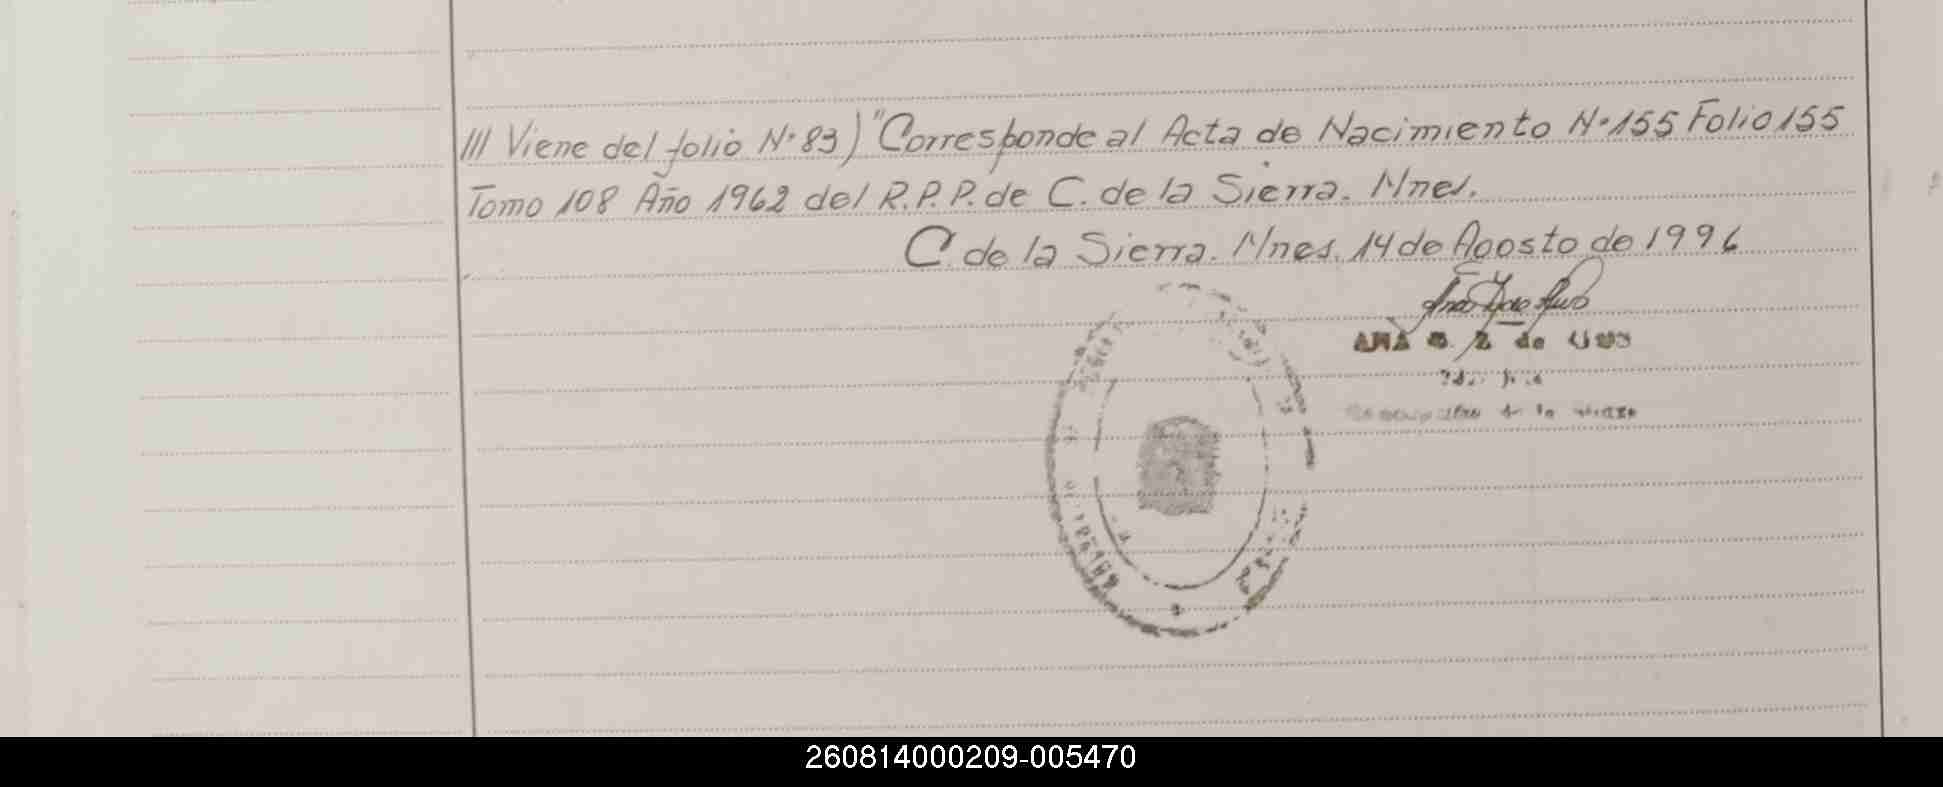 /// Viene del folio N° 83) "Corresponde al Acta de Nacimiento N° 155 Folio 155
Tomo 108 Año 1962 del R.P.P. de C. de la Sierra. Mnes.
C. de la Sierra. Mnes. 14 de Agosto de 1996
ANA Z de
de la
260814000209-005470